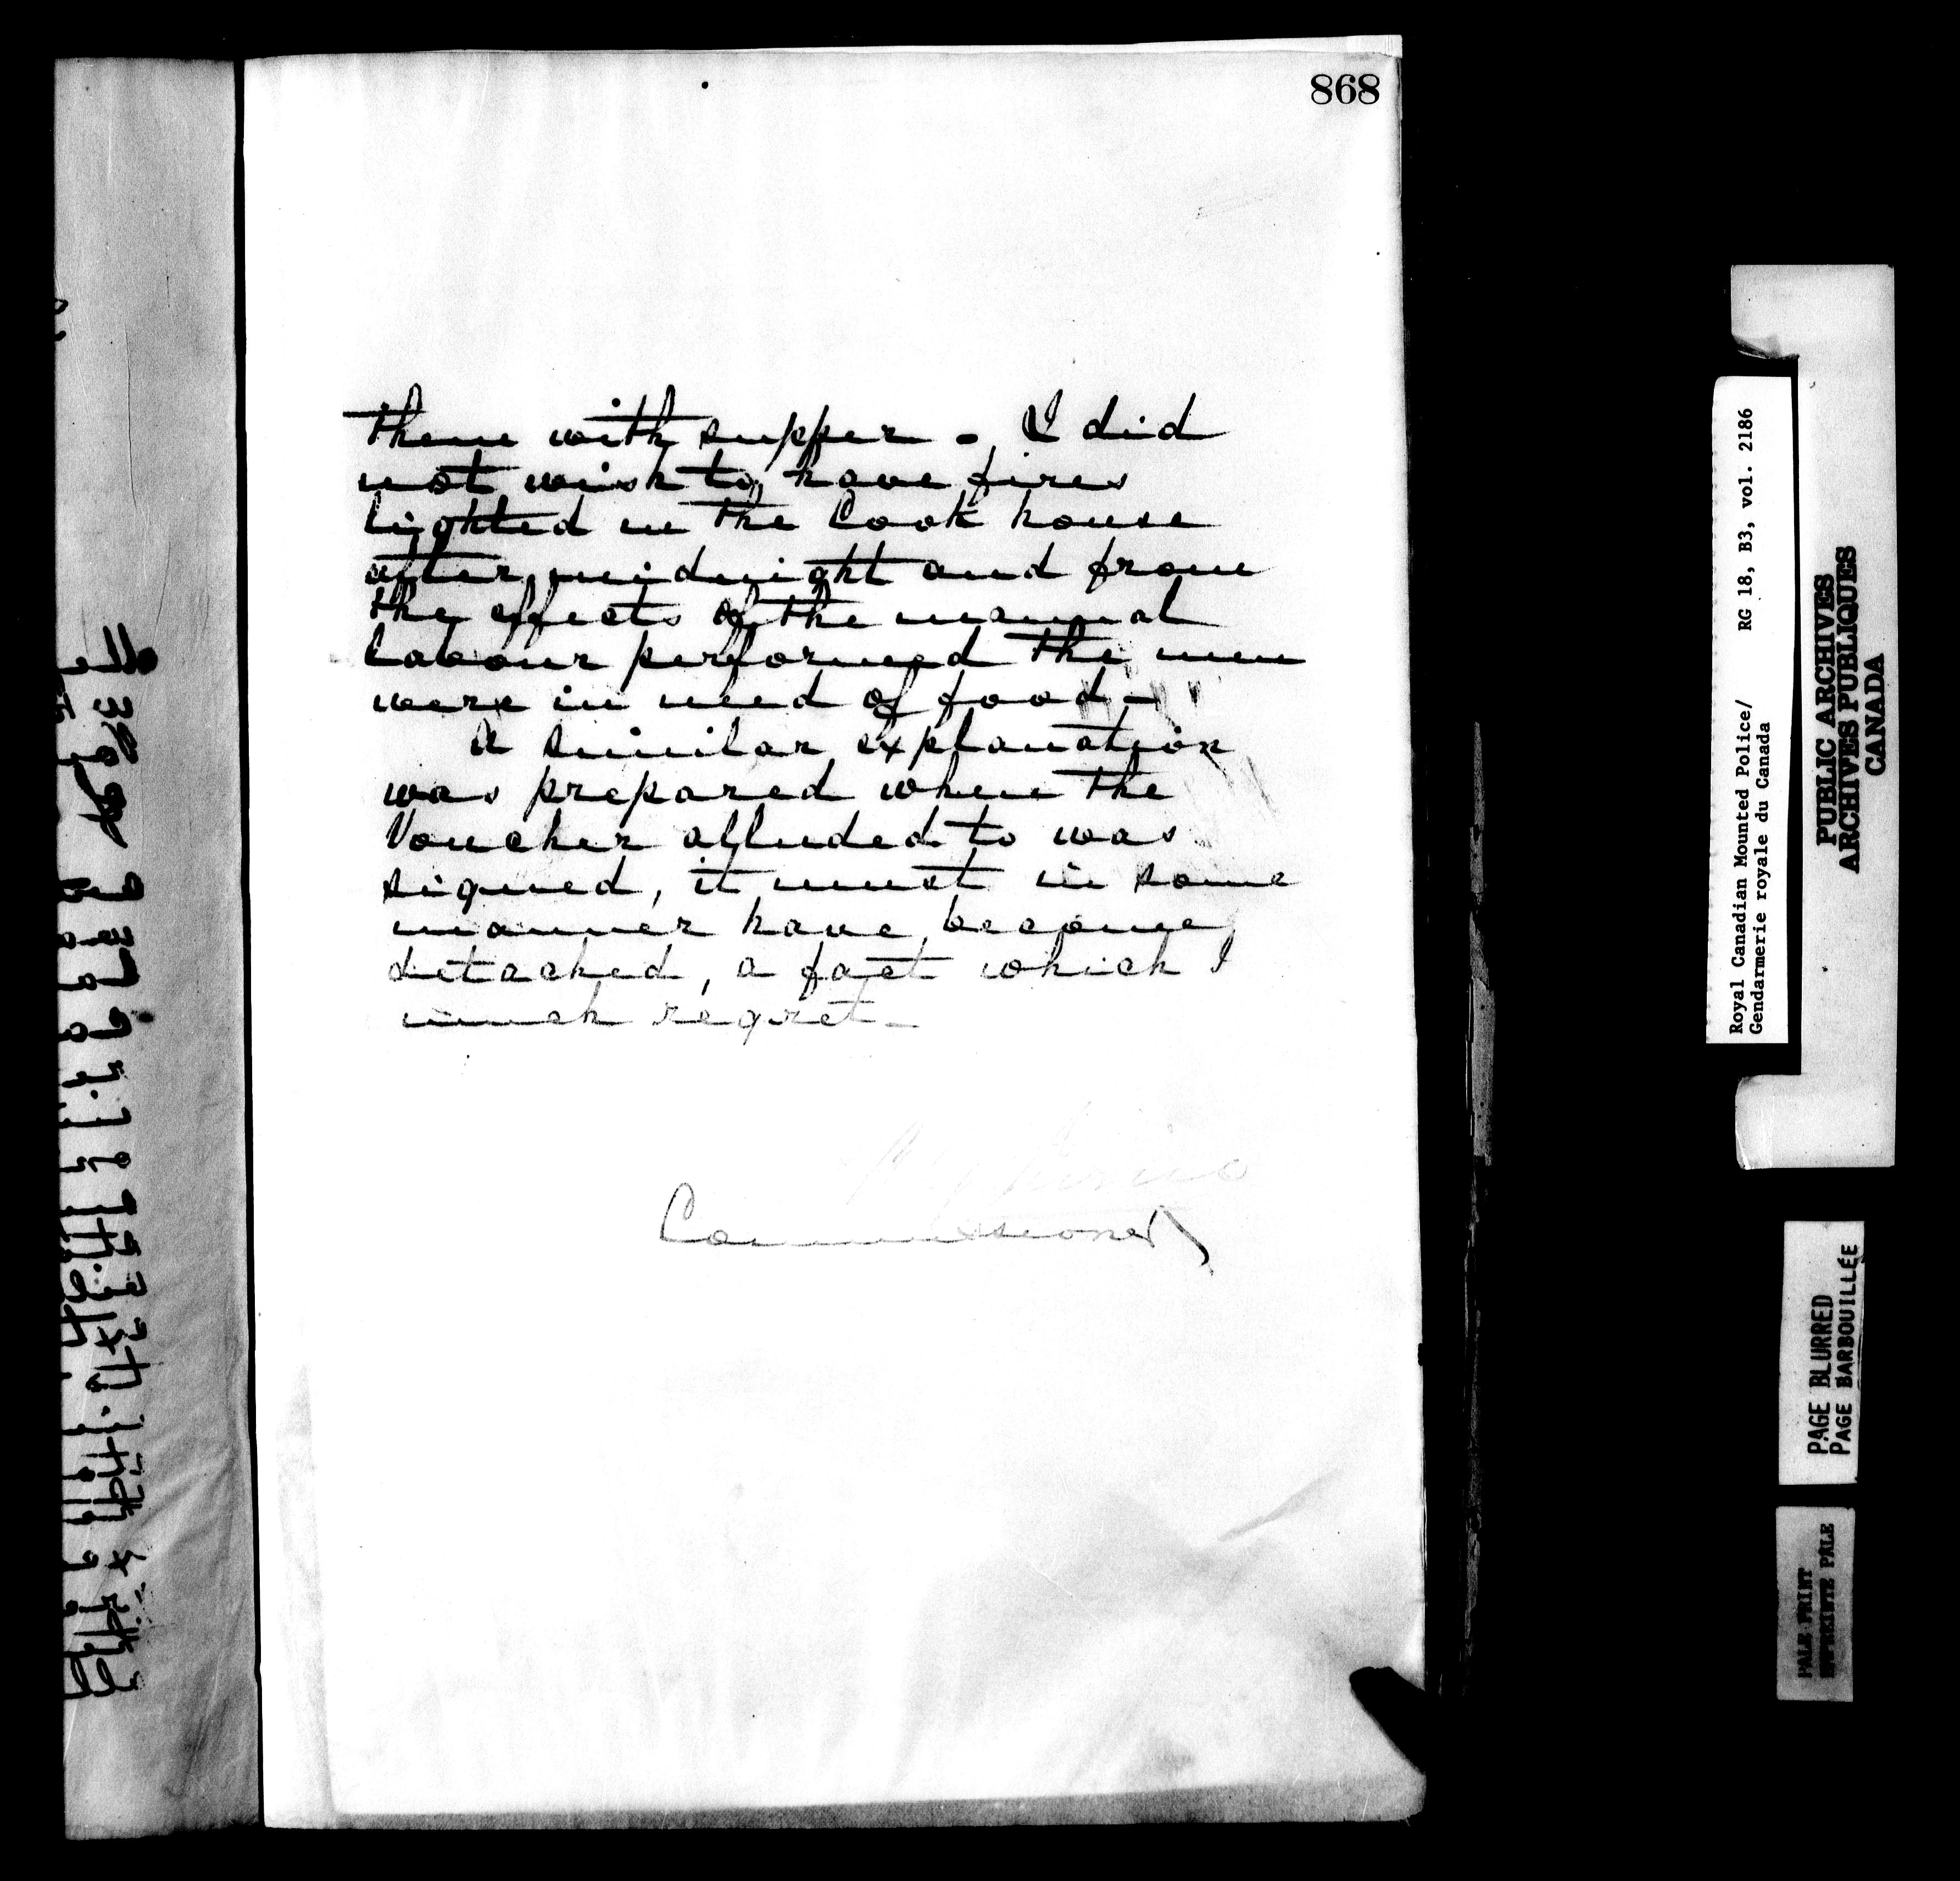 868
them with supper - I did
not wish to have fires
lighted in the Cook house
after midnight and from
the effects of the manual
labour performed the men
were in need of food -
A similar explanation
was prepared when the
Voucher alluded to was
signed, it must in some
manner have become
detached, a fact which I
much regret -
Commissioner
Royal Canadian Mounted Police/ RG 18, B3, vol. 2186
Gendarmerie royale du Canada
PUBLIC ARCHIVES
ARCHIVES PUBLIQUES
CANADA
PAGE BLURRED
PAGE BARBOUILLÉE
PALE PRINT
EMPREINTE PÂLE